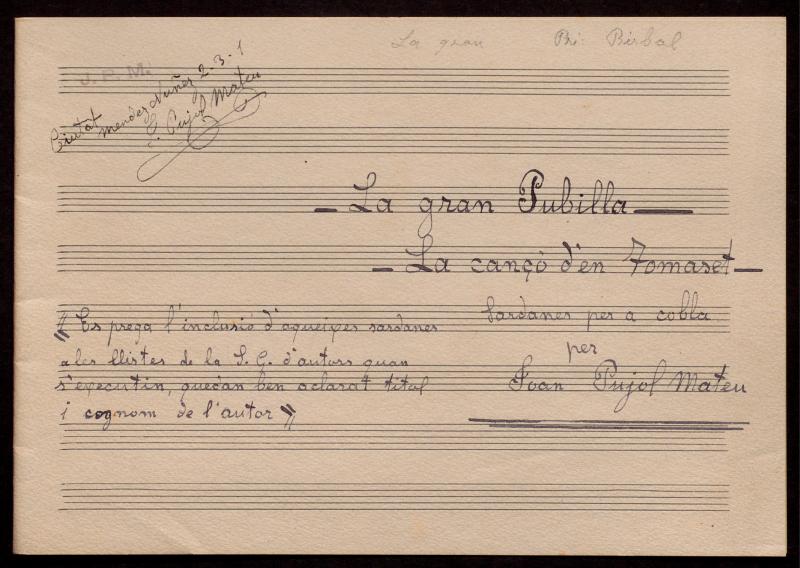 La gran Bri: Birbal
J. P. M.
Ciutat Mendez Nuñez 2-3-1
E. Pujol Mateu
— La gran Pubilla —
— La cançò d'en Tomaset —
Sardanes per a cobla
per
Joan Pujol Mateu
« Es prega l'inclusió d'aqueixes sardanes
a les llistes de la S. G. d'autors quan
s'executin, quedan ben aclarat titol
i cognom de l'autor »